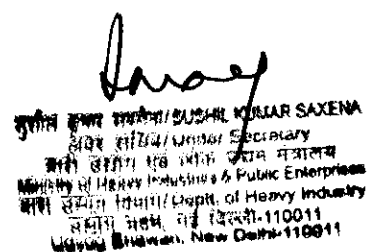 सुशील कुमार सक्सेना/SUSHIL KUMAR SAXENA
अवर सचिव/Under Secretary
भारी उद्योग एवं लोक उद्यम मंत्रालय
Ministry of Heavy Industries & Public Enterprises
भारी उद्योग विभाग/Deptt. of Heavy Industry
उद्योग भवन, नई दिल्ली-110011
Udyog Bhawan, New Delhi-110011